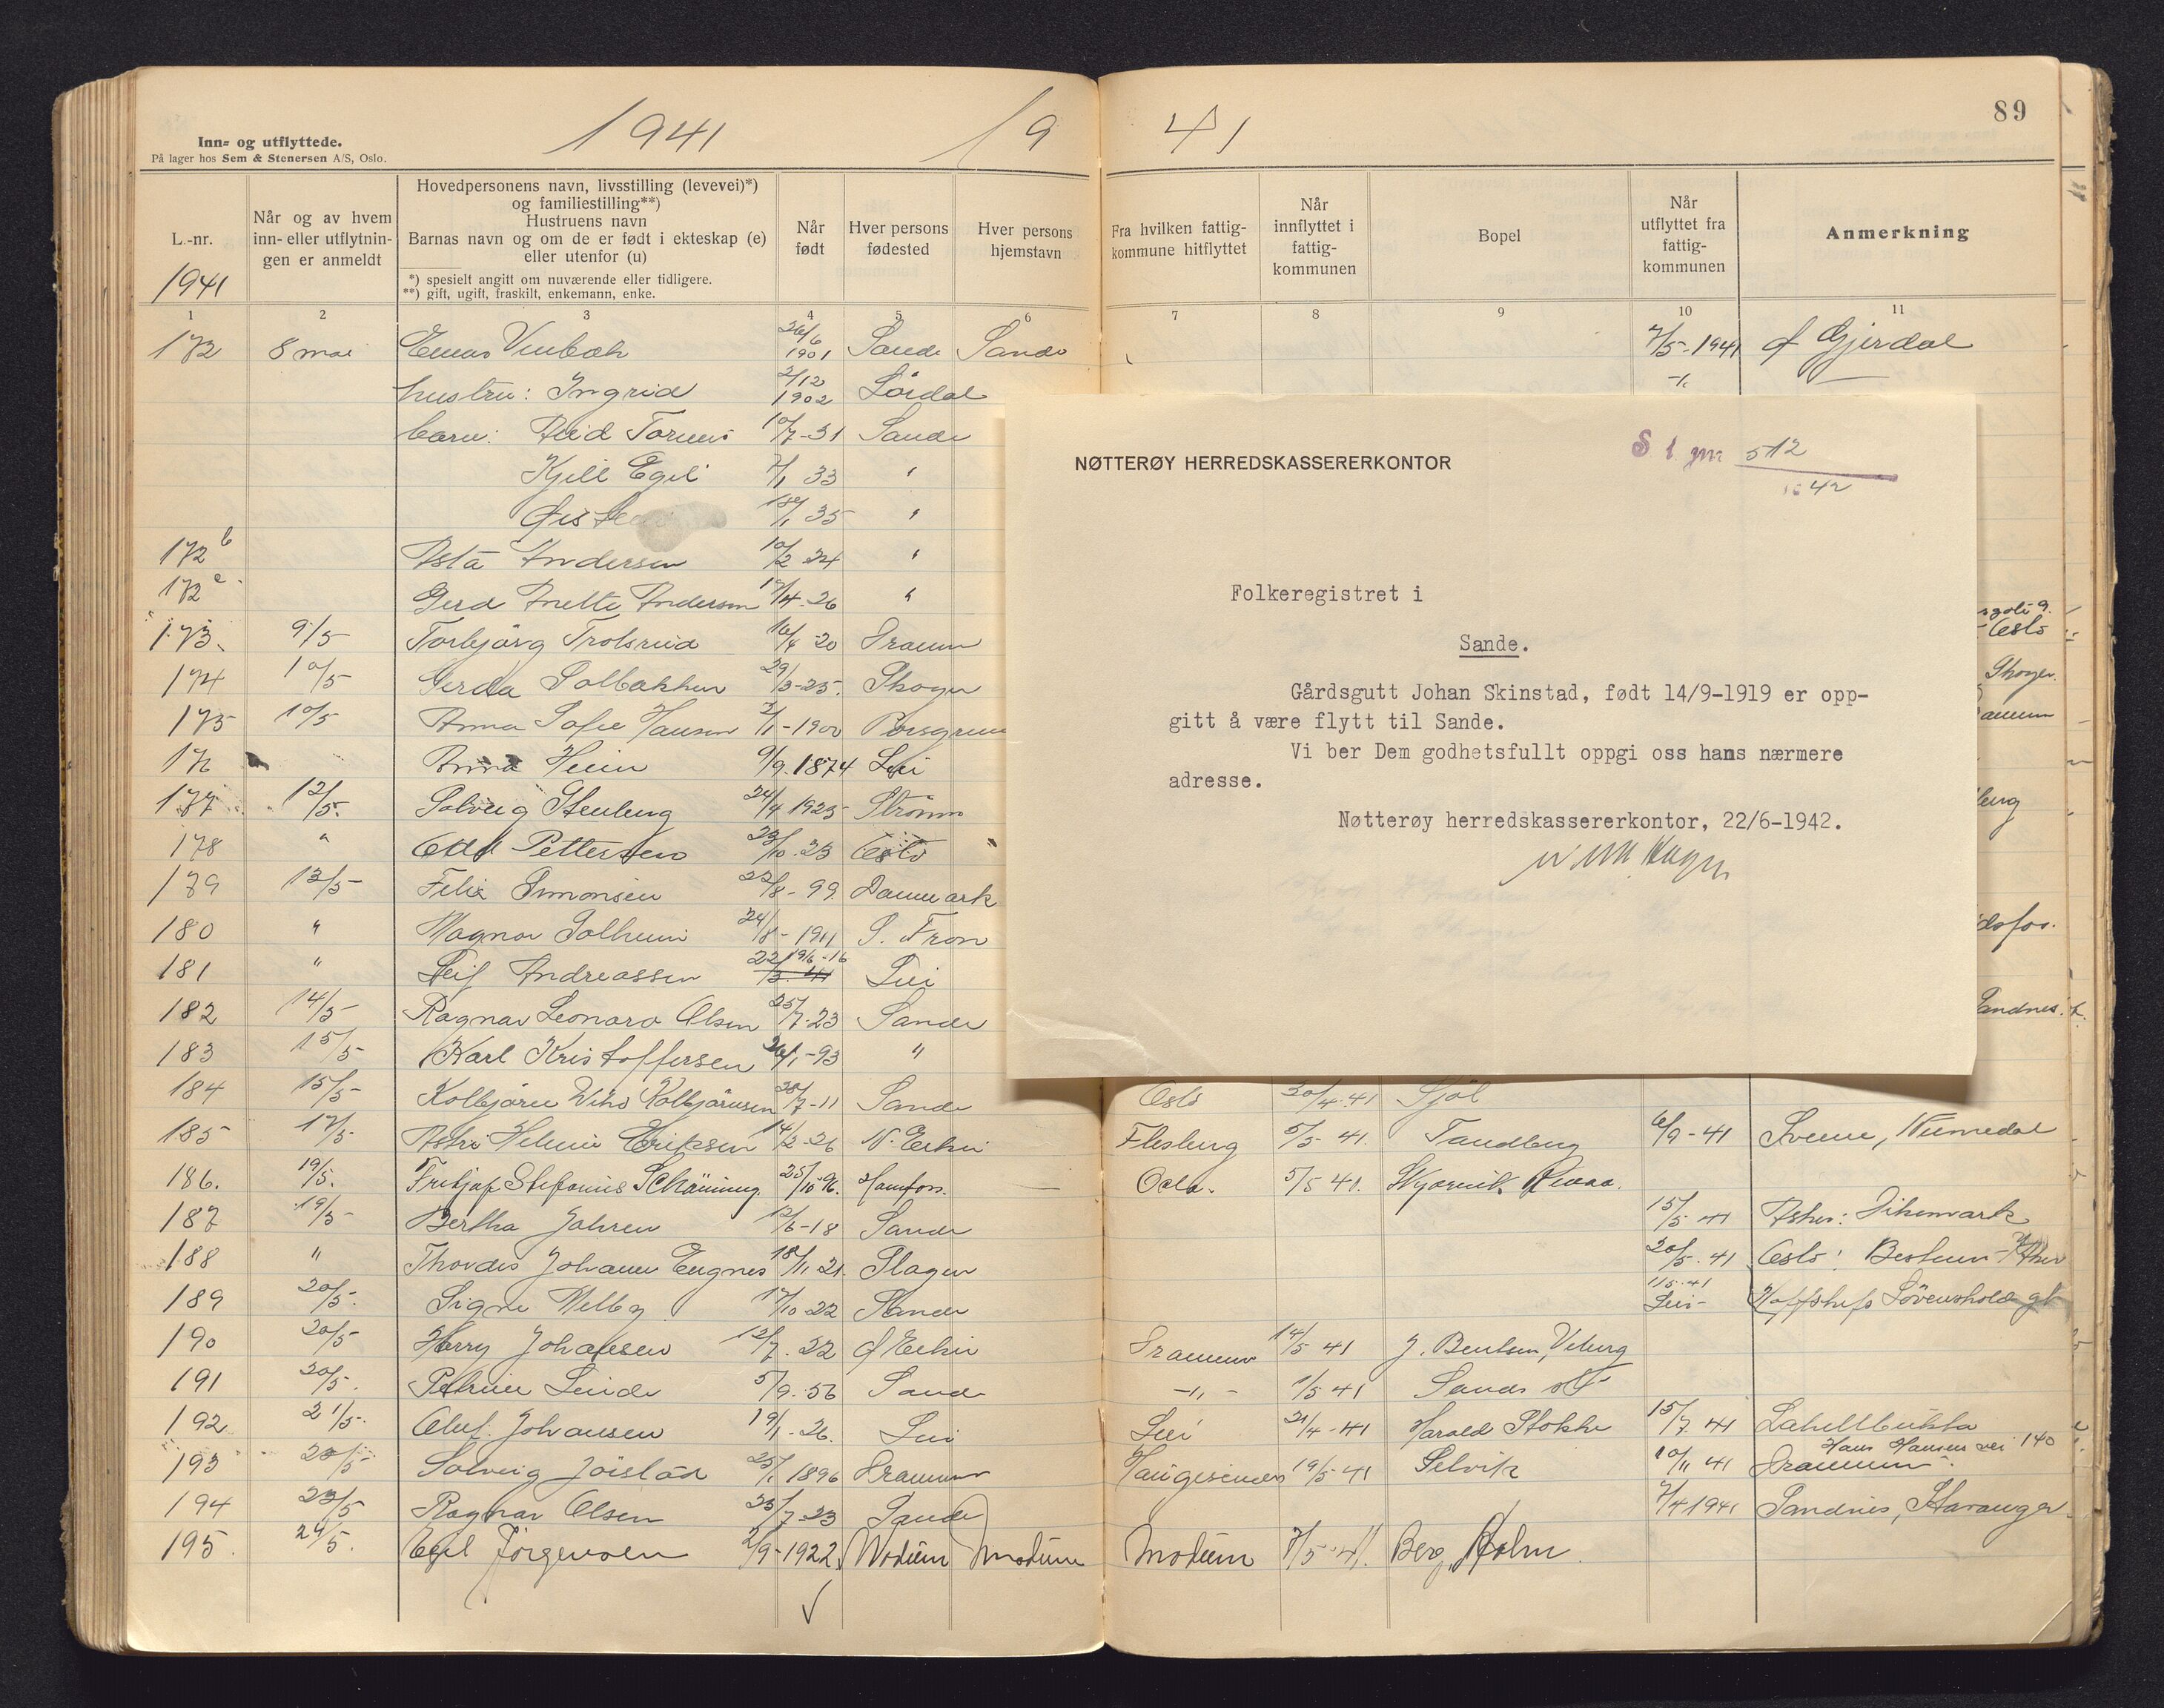 89
1941 19 41
Inn- og utflyttede.
På lager hos Sem & Stenersen A/S, Oslo.
L.-nr.
1941
Når og av hvem
inn- eller utflytnin-
gen er anmeldt
Hovedpersonens navn, livsstilling (levevei)*)
og familiestilling**)
Hustruens navn
Barnas navn og om de er født i ekteskap (e)
eller utenfor (u)
*) spesielt angitt om nuværende eller tidligere.
**) gift, ugift, fraskilt, enkemann, enke.
Når
født
Hver persons
fødested
Hver persons
hjemstavn
Fra hvilken fattig-
kommune hitflyttet
Når
innflyttet i
fattig-
kommunen
Bopel
Når
utflyttet fra
fattig-
kommunen
Anmerkning
1 2 3 4 5 6 7 8 9 10 11
172 8 mai 26/6 1901 Sande Sande 7/5-1941
hustru: Ingrid 2/12 1902
barn: 10/7-31 Sande
Kjell Egil 7/1 33 "
18/1 35 "
172 b Asta Andersen 10/2 24 "
172 c Gerd Mette Andersen 26 "
173. 9/5 Torbjørg 16/4 20 Dramm
174 10/5 Gerda Solbakken 29/3-25. Skoger
175 10/5 Anna Sofie Hansen 1900
176 Anna 9/9.1874 Lier
177 12/5. Solveig Stenberg 24/4 1925 Strømm
178 " Pettersen 23/10.23 Oslo
179 13/5 Felix Simonsen 22/8-99. Danmark
180 " Magnar Solheim 24/8-1911 S. Fron
181 " Leif Andreassen 19/6-16 Lier
182 14/5 Ragnar Leonard Olsen 25/7-23 Sande Sandnes
183 15/5 Karl Kristoffersen 26/1-93 "
184 15/5 Kolbjørn 28/7-11 Sande Oslo 30/4.41
185 17/5 Eriksen 14/2-26 N. Eiker Flesberg 5/5 41. Tandberg 6/9-41 Svene, Numedal
186. 19/5. 25/10-96. Oslo. 5/5 41.
187 19/5 Bertha 12/6-18 Sande 15/5 41 Asker: Dikemark
188 " Thordis Johanne Engnes 18/11 21. Slagen 20/5. 41 Oslo: Bestum
189 20/5. Signe Melby 17/10-22 Sande
190 20/5 Harry Johansen 12/7. 22 Ø Eiker Drammen 14/5 41 J. Bentsen, Veberg
191 20/5. Linde 5/9.56 Sande 1/5 41 Sande
192 21/5. Oluf Johansen 19/1-26. Lier Lier 21/4-41 Harald Stokke 15/7 41 Lahellbukta
Hans Hansens vei 140
193 Solveig 1896 Drammen 19/5-41 Selvik 10/11 41 Drammen
194 23/5 Ragnar Olsen 25/7-23 Sande 7/4 1941 Sandnes, Stavanger
195. 24/5. Egil Jörgensen 2/9-1922. Modum Modum Modum 7/5-41. Berg, Holm
NØTTERØY HERREDSKASSERERKONTOR
512
42
Folkeregistret i
Sande.
Gårdsgutt Johan Skinstad, født 14/9-1919 er opp-
gitt å være flytt til Sande.
Vi ber Dem godhetsfullt oppgi oss hans nærmere
adresse.
Nøtterøy herredskassererkontor, 22/6-1942.